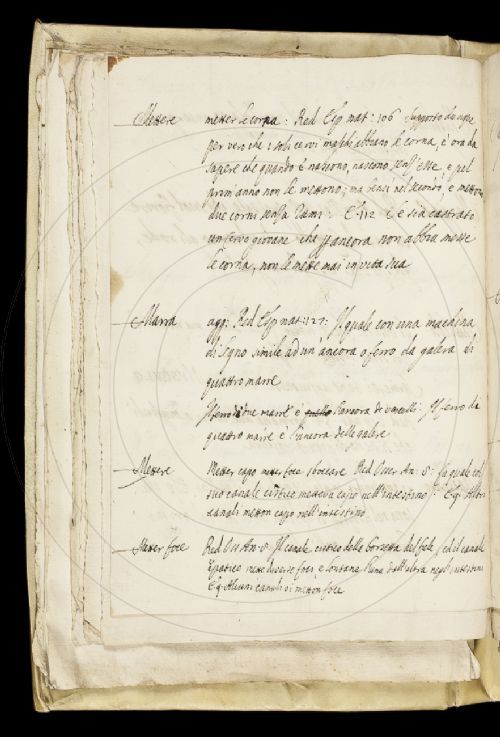 Mettere metter le corna: Red Esp nat: 106 Supposto dunque
per vero che i soli cervi maschi abbiano le corna, è ora da
sapere che quando è nascono, nascono senz'esse, e pel
primm'anno non le mettono; ma bensì nel secondo, e mettono
due corni senza rami: E 112 E se sia castrato
un cervo giovane che per ancora non abbia messe
le corna, non le mette mai in vita sua
Marra agg: Red Esp nat: 27: Il quale con una macchina
di legno simile ad un'ancora o ferro da galera di
quattro marre
Il ferro di due marre è l'ancora de vascelli. Il ferro di
quattro marre è l'ancora delle galere
Mettere Metter capo metter foce sboccare Red Osser An: 5: la quale col
suo canale cistico metteva capo nell'intestino. E 9: Altri
canali metton capo nell'intestino
Metter foce Red Oss An. 5. Il canale cistico della borsetta del fiele, ed il canale
epatico mette diverse foci, e lontane l'una dall'altra negli intestini
E 9: Alcuni canali vi metton foce